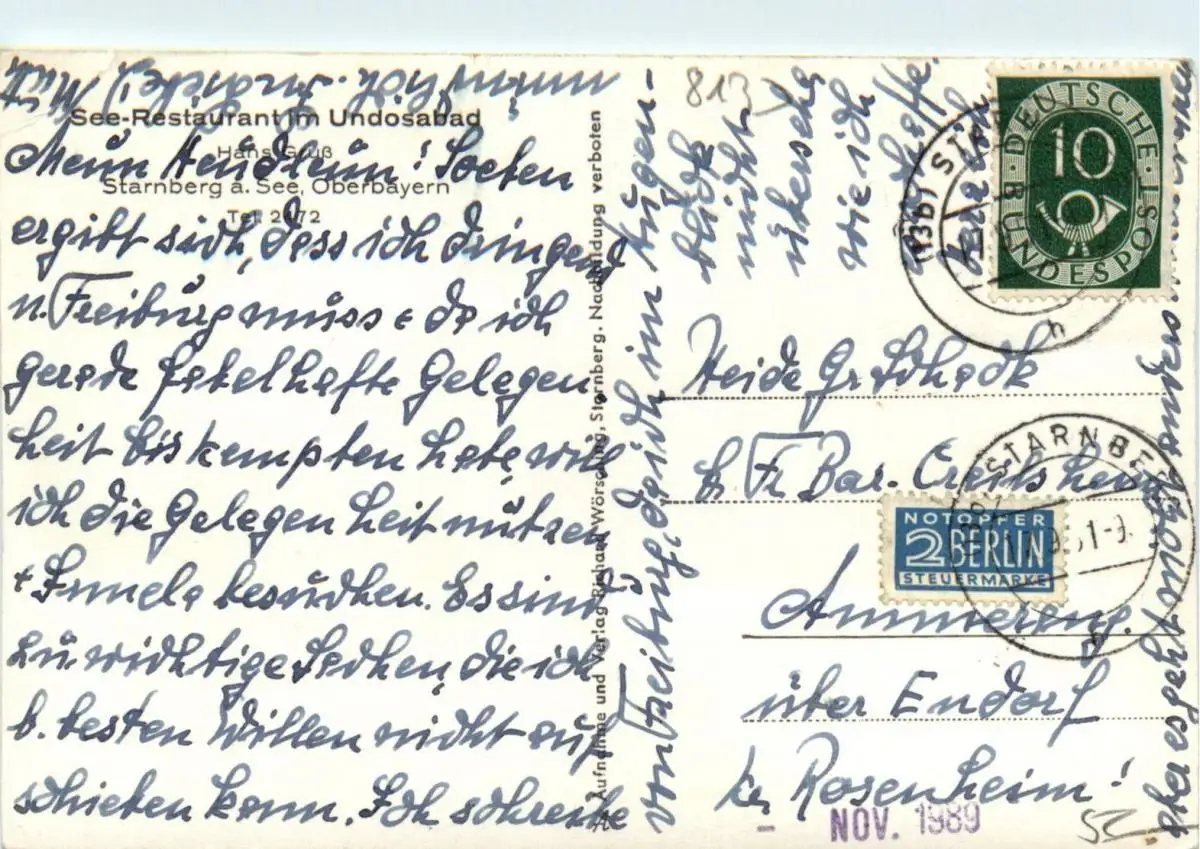 See-Restaurant im Undosabad
Hans Gruß
Starnberg a. See, Oberbayern
Tel. 2472
Mein Heidlein! Soeben
ergibt sich, dass ich dringend
n. Freiburg muss & da ich
gerade fabelhafte Gelegen
heit bis Kempten habe will
ich die Gelegenheit nützen
+ besuchen. Es sind
zu wichtige Sachen, die ich
b. besten Willen nicht auf
schieben kann. Ich schreibe
von Freiburg, da ich im Augen-
blick
nicht
übersehe
wie ich
Aber ich
aber es geht anders
Aufnahme und Verlag Richard Wörsching, Starnberg. Nachbildung verboten
813
Heide Gradhadk
b/ Fr Bar. Creilsheim
Ammerang
über Endorf
b/ Rosenheim!
DEUTSCHE BUNDESPOST
10
(13b) STARNBERG
h
(13b) STARNBERG
NOTOPFER
2 BERLIN
STEUERMARKE
- NOV. 1989
52